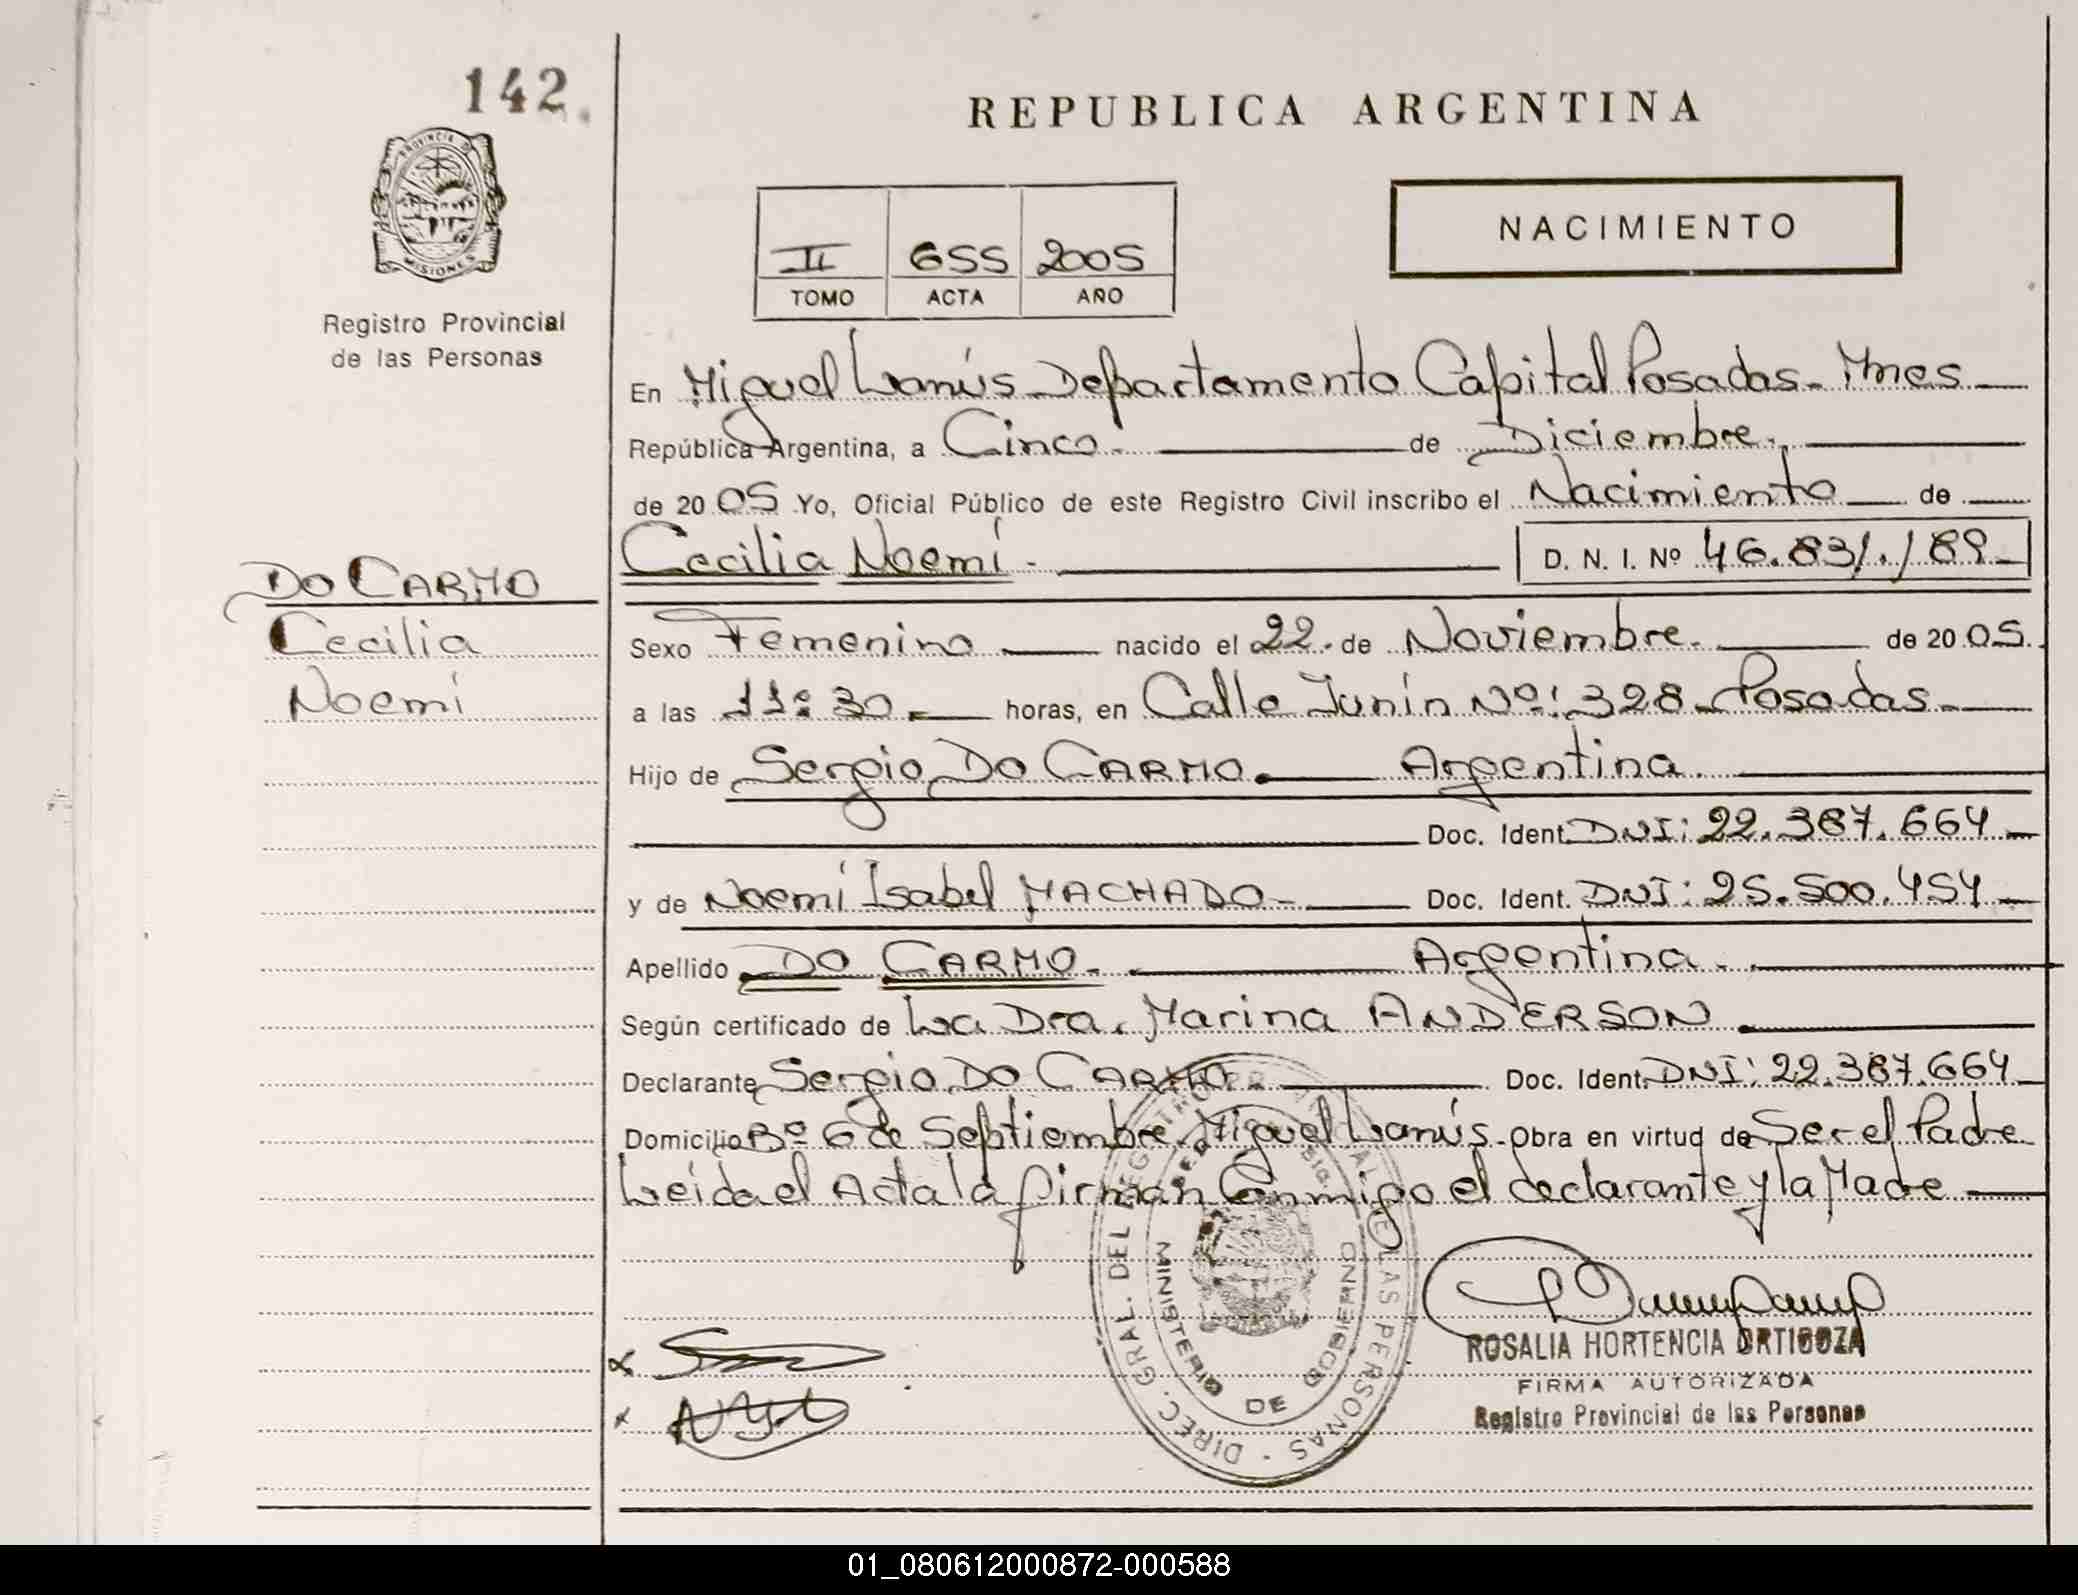 142
REPUBLICA ARGENTINA
PROVINCIA D
MISIONES
Registro Provincial
de las Personas
NACIMIENTO
II 655 2005
TOMO ACTA AÑO
En Miguel Lanús Departamento Capital Posadas. Mnes
República Argentina, a Cinco. de Diciembre.
de 2005 Yo, Oficial Público de este Registro Civil inscribo el Nacimiento de
Cecilia Noemí. D. N. I. Nº 46.831.189
DO CARMO
Cecilia
Noemí
Sexo Femenino nacido el 22. de Noviembre. de 2005.
a las 11:30 horas, en Calle Junín Nº: 328 Posadas.
Hijo de Sergio DO CARMO. Argentina.
Doc. Ident. DNI: 22.387.664
y de Noemí Isabel MACHADO Doc. Ident. DNI: 25.500.454
Apellido DO CARMO. Argentina.
Según certificado de La Dra. Marina ANDERSON
Declarante Sergio DO CARMO. Doc. Ident. DNI: 22.387.664
Domicilio Bº 6 de Septiembre. Miguel Lanús. Obra en virtud de Ser el Padre
Leída el Acta la firman Conmigo el declarante y la Madre
DIREC. GRAL. DEL REGISTRO DE LAS PERSONAS
MINISTERIO DE GOBIERNO
ROSALIA HORTENCIA ORTIGOZA
FIRMA AUTORIZADA
Registro Provincial de las Personas
01_080612000872-000588